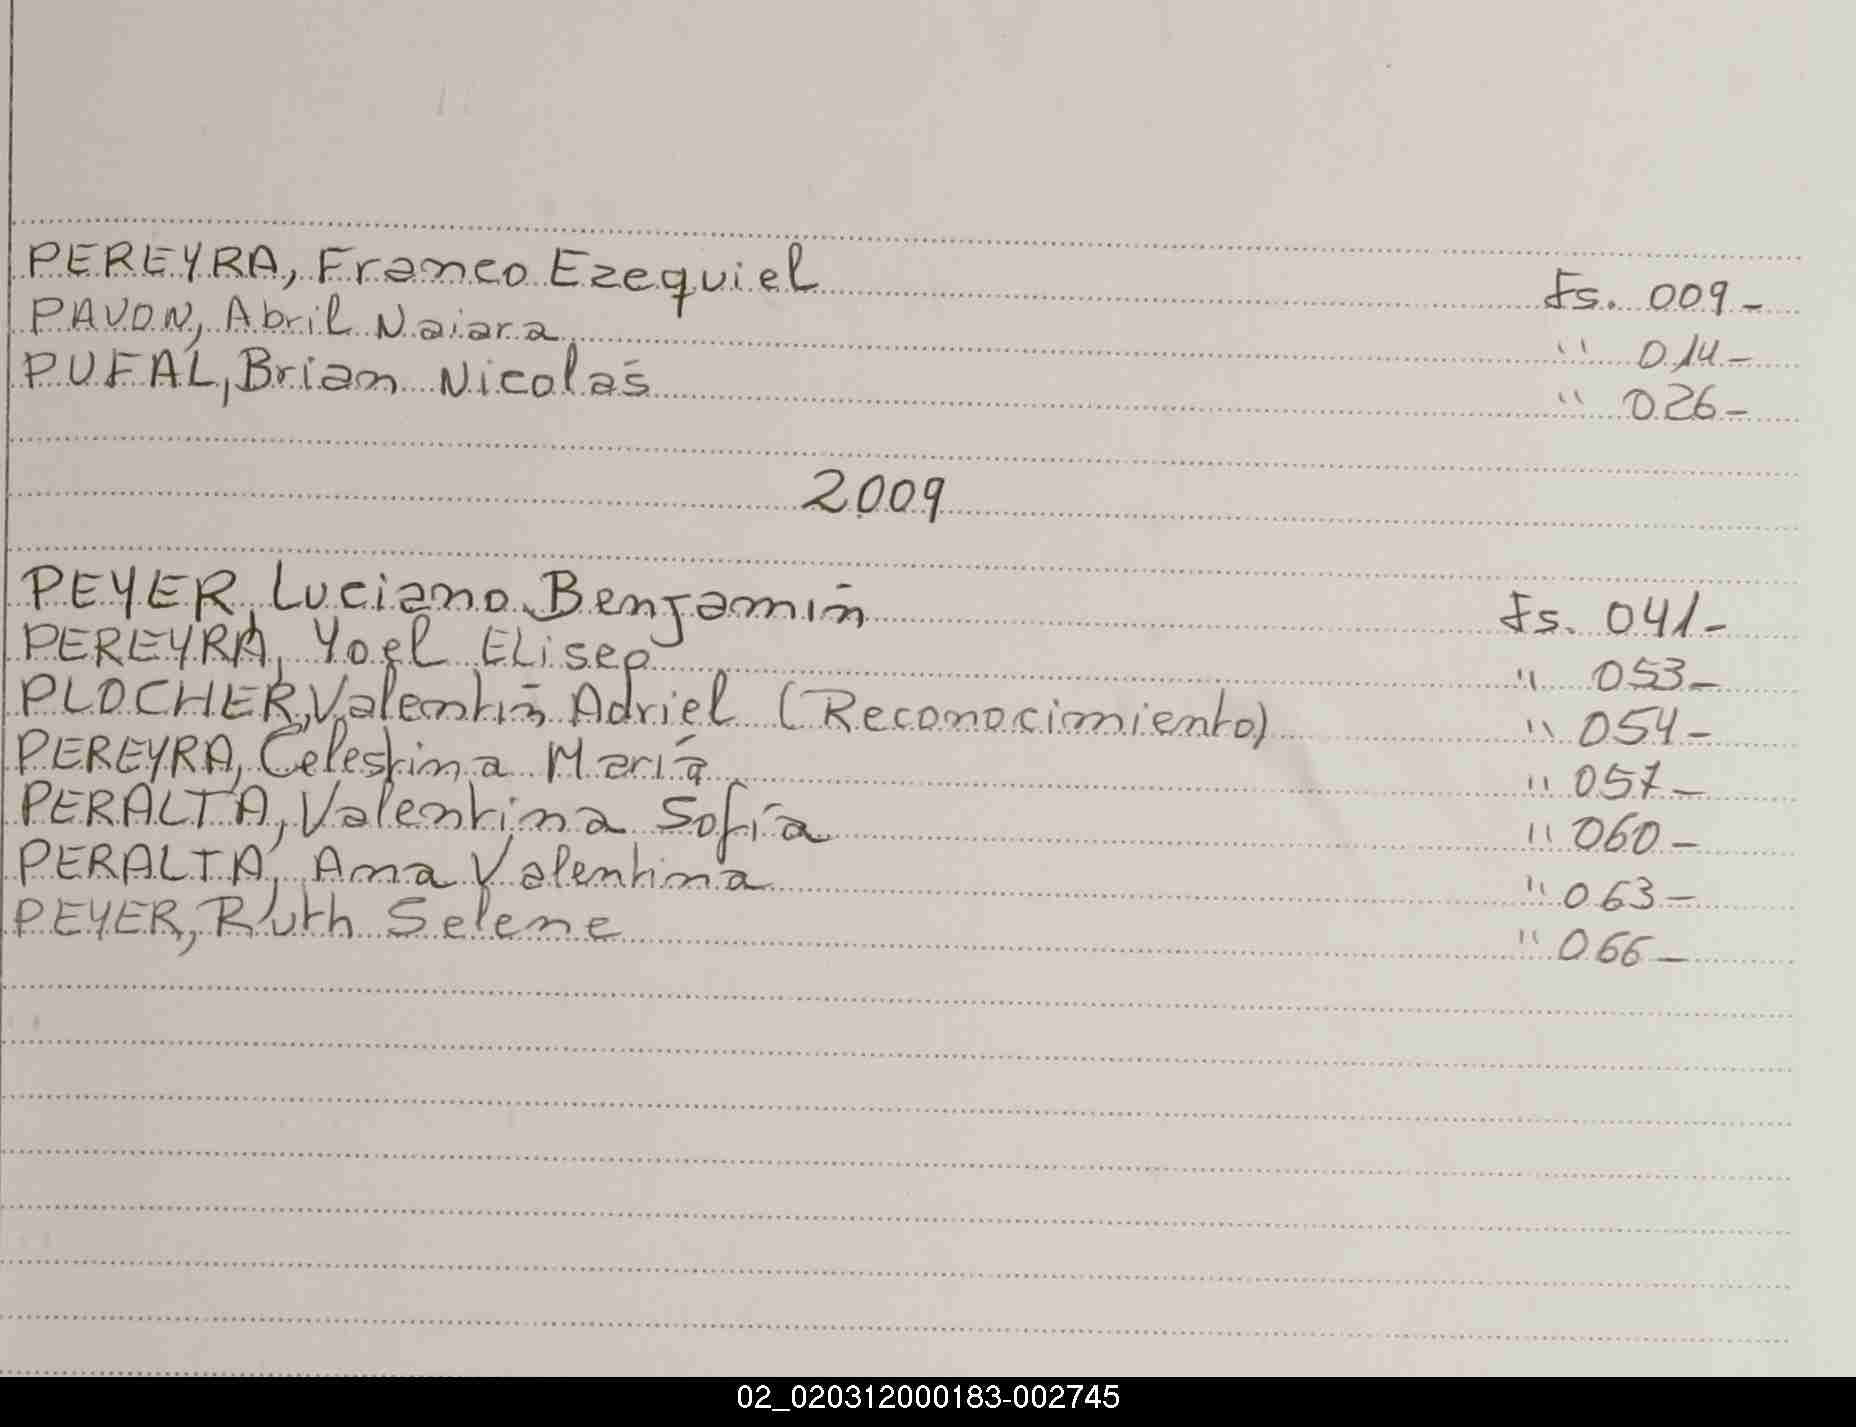 PEREYRA, Franco Ezequiel Fs. 009-
PAVON, Abril Naiara " 014-
PUFAL, Brian Nicolás " 026-
2009
PEYER, Luciano Benjamín Fs. 041-
PEREYRA, Yoel Eliseo " 053-
PLOCHER, Valentín Adriel (Reconocimiento) " 054-
PEREYRA, Celestina María " 057-
PERALTA, Valentina Sofía " 060-
PERALTA, Ana Valentina " 063-
PEYER, Ruth Selene " 066-
02_020312000183-002745